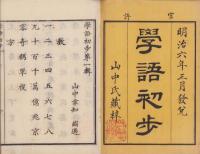 官許
明治六年三月發兌
學語初步
山中氏藏梓
學語初步第一輯
山中
數
一二三四五六七八
九十百千萬億兆京
零奇耦單複
方